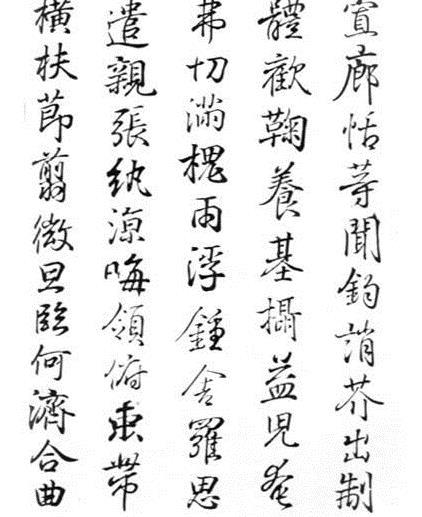 宣廊恬等聞鈞誚芥出制
體歡鞠養基攝益兒奄
弗切滿槐雨浮鍾舍羅思
遣親張紈涼晦領俯束帶
橫扶節翦微旦臨何濟合曲